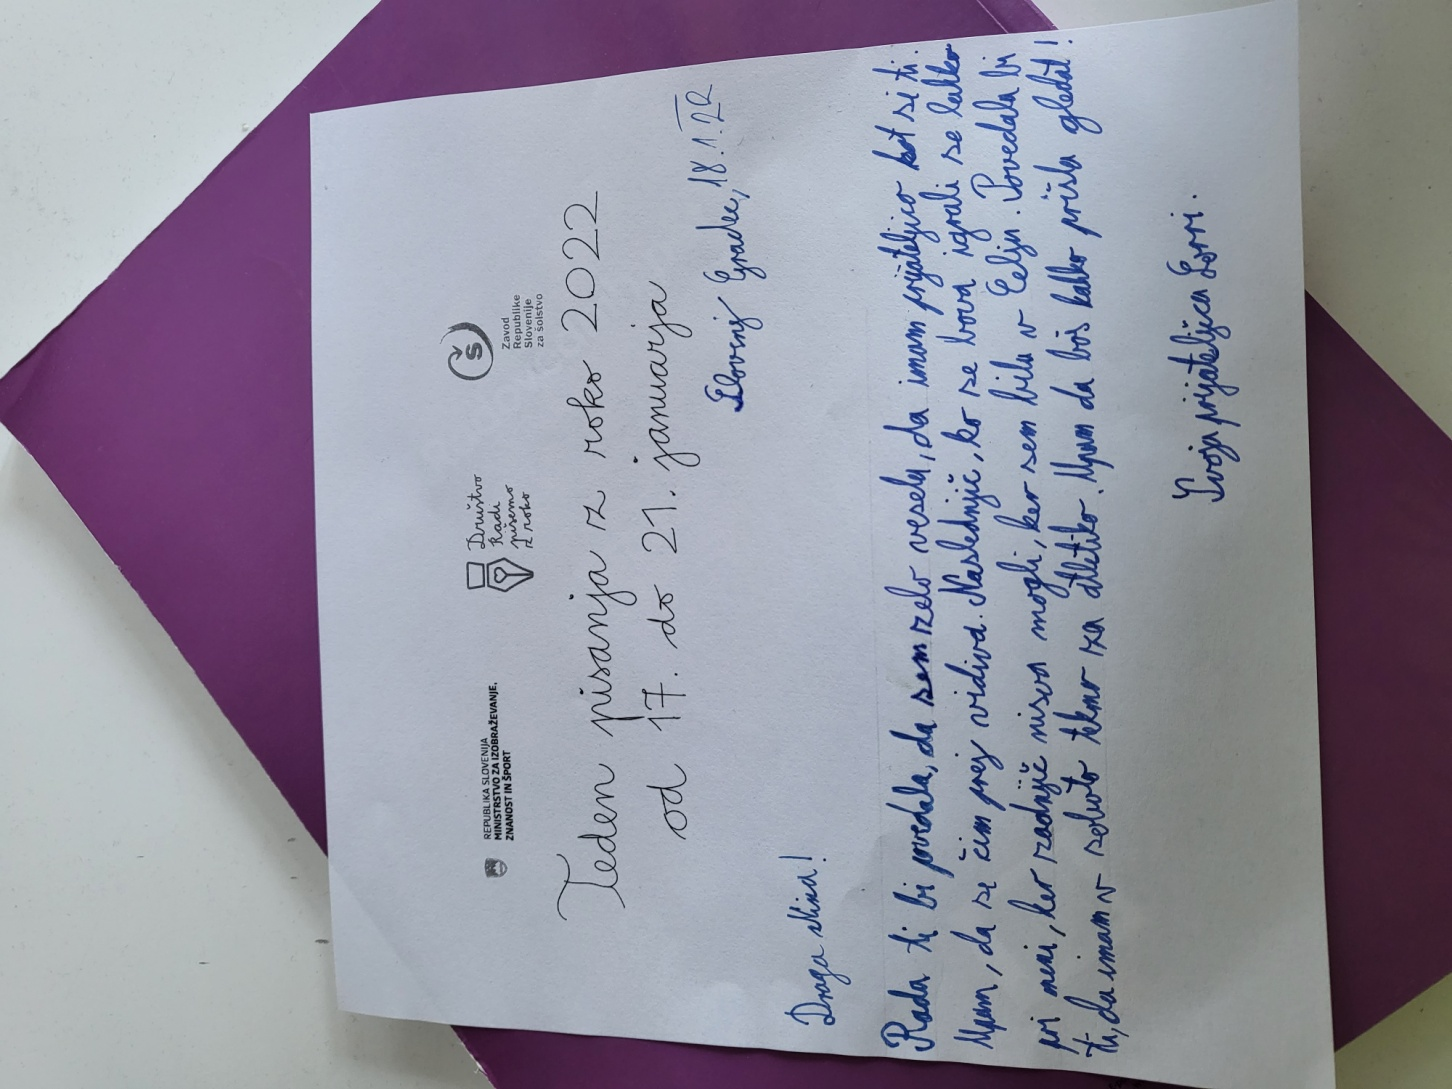 REPUBLIKA SLOVENIJA
MINISTRSTVO ZA IZOBRAŽEVANJE,
ZNANOST IN ŠPORT
Društvo
Radi
pišemo
z roko
š
Zavod
Republike
Slovenije
za šolstvo
Teden pisanja z roko 2022
od 17. do 21. januarja
Slovenj Gradec, 18.1.22
Draga Nina!
Rada ti bi povedala, da sem zelo vesela, da imam prijateljico kot si ti.
Upam, da se čim prej vidiva. Naslednjič, ko se bova igrali se lahko
pri meni, ker zadnjič nisva mogli, ker sem bila v Celju. Povedala bi
ti, da imam v soboto tekmo za atletiko. Upam da boš lahko prišla gledat!
Tvoja prijateljica Lorri.